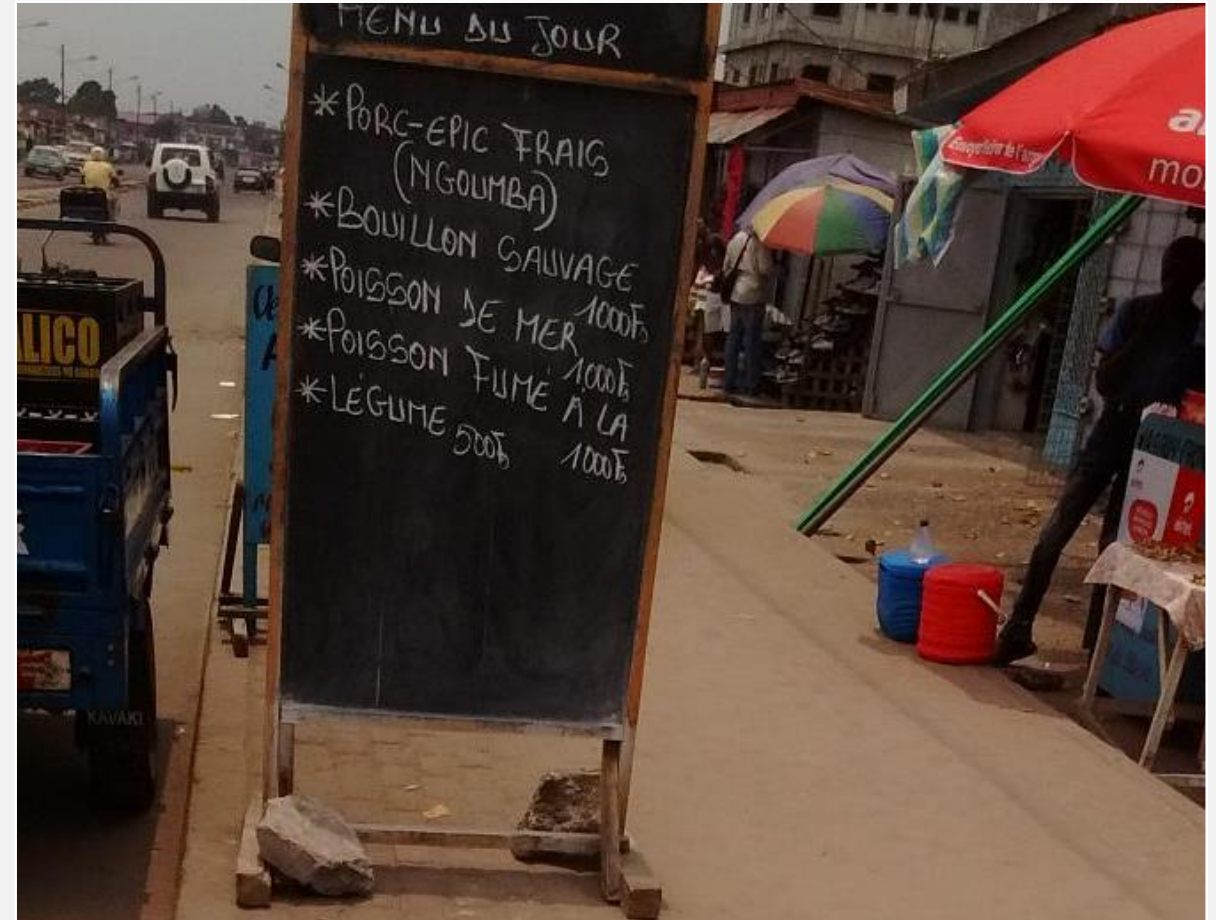 MENU DU JOUR
*PORC-EPIC FRAIS
(NGOUMBA)
*BOUILLON SAUVAGE
1000F
*POISSON DE MER
1000F
*POISSON FUMÉ À LA
1000F
*LÉGUME 500F
ALICO
KAVAKI
mo